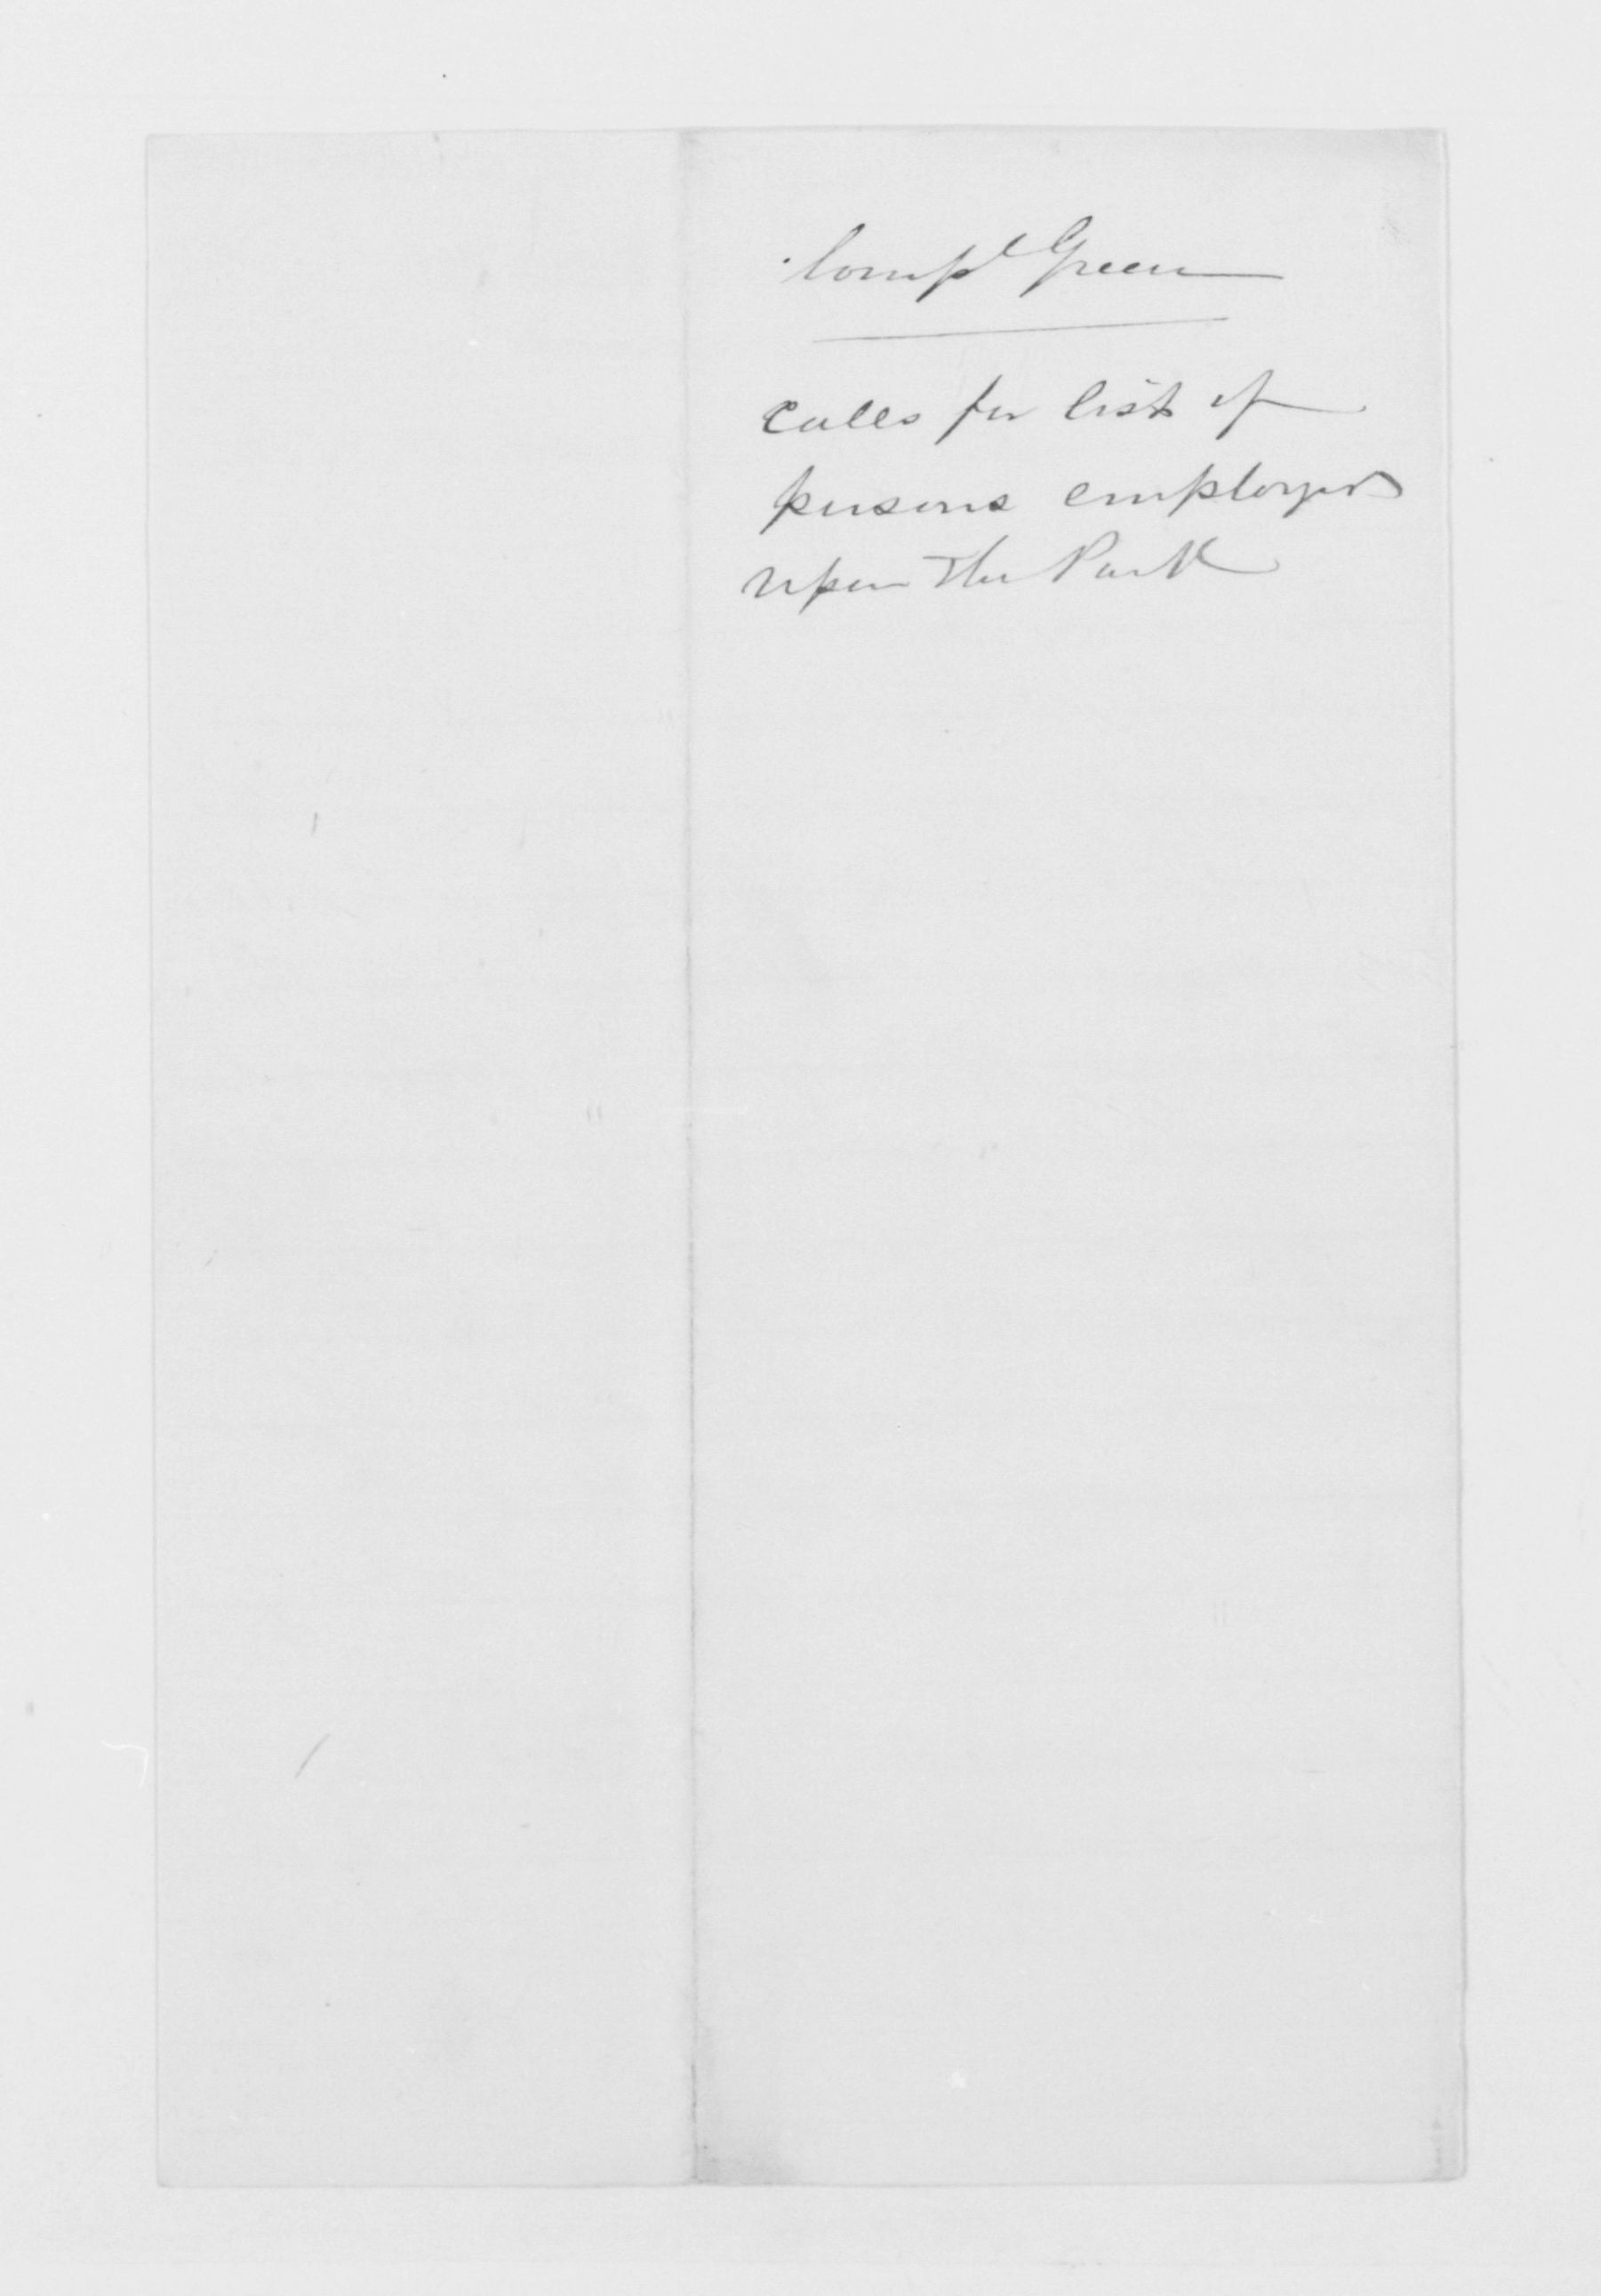 Compl Green
calls for list of
persons employed
upon the Park